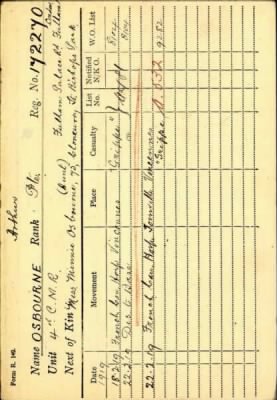 Arthur
Name OSBOURNE Rank Pte. Reg. No. 172270
Unit 4th C.M.R. (Aunt) Fulham Palace Rd Fulham London
Next of Kin Miss Minnie Osbourne, 73, Cloncurry St Bishops Park
Date Movement Place Casualty List No. Notified N.K.O. W.O. List
1919
18-2-19 French Gen Hosp Vincennes Grippe
22-2-19 Dis to Base
22-2-19 French Gen Hosp Vincennes "Grippe" 9.82
Form R. 149.